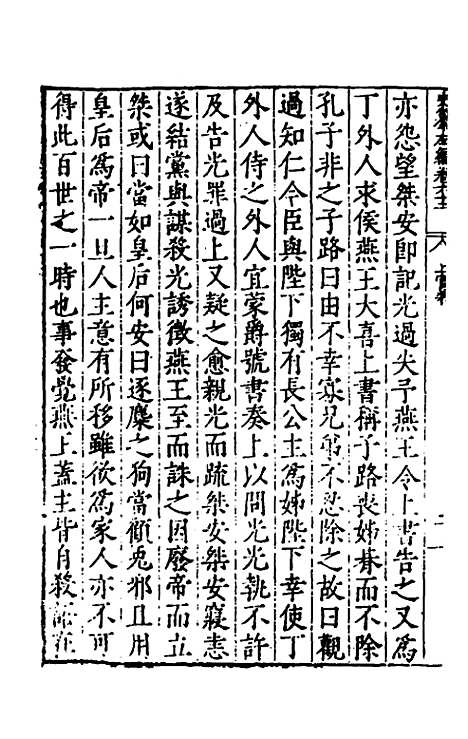 亦怨望桀安即記光過失予燕王令上書告之又爲
丁外人求侯燕王大喜上書稱子路喪姊朞而不除
孔子非之子路曰由不幸寡兄弟不忍除之故曰觀
過知仁今臣與陛下獨有長公主爲姊陛下幸使丁
外人侍之外人宜蒙爵號書奏上以問光光執不許
及告光罪過上又疑之愈親光而疏桀安桀安寖恚
遂結黨與謀殺光誘徵燕王至而誅之因廢帝而立
桀或曰當如皇后何安曰逐麋之狗當顧兎邪且用
皇后爲帝一旦人主意有所移雖欲爲家人亦不可
得此百世之一時也事發覺燕上蓋主皆自殺